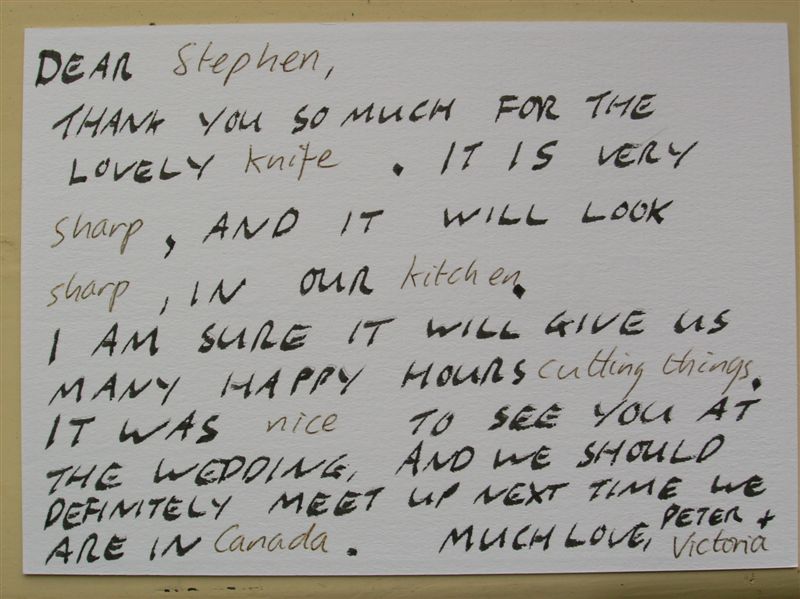 DEAR Stephen,
THANK YOU SO MUCH FOR THE
LOVELY knife . IT IS VERY
sharp , AND IT WILL LOOK
sharp , IN OUR kitchen.
I AM SURE IT WILL GIVE US
MANY HAPPY HOURS cutting things.
IT WAS nice TO SEE YOU AT
THE WEDDING, AND WE SHOULD
DEFINITELY MEET UP NEXT TIME WE
ARE IN Canada . MUCH LOVE, PETER +
Victoria